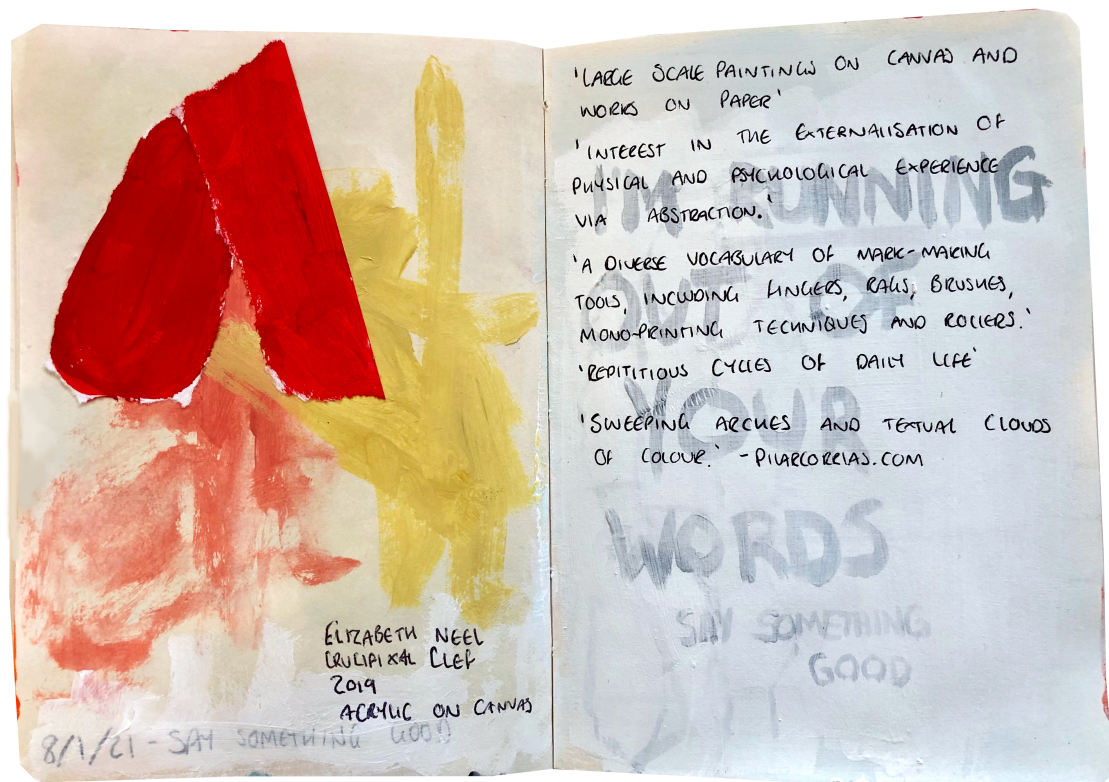 ELIZABETH NEEL
CRUCIFIXAL CLEF
2019
ACRYLIC ON CANVAS
8/1/21 - SAY SOMETHING GOOD
'LARGE SCALE PAINTINGS ON CANVAS AND
WORKS ON PAPER'
'INTEREST IN THE EXTERNALISATION OF
PHYSICAL AND PSYCHOLOGICAL EXPERIENCE
VIA ABSTRACTION.'
'A DIVERSE VOCABULARY OF MARK-MAKING
TOOLS, INCLUDING FINGERS, RAGS, BRUSHES,
MONO-PRINTING TECHNIQUES AND ROLLERS.'
'REPITITIOUS CYCLES OF DAILY LIFE'
'SWEEPING ARCHES AND TEXTUAL CLOUDS
OF COLOUR.' - PILARCORRIAS.COM
I'M RUNNING
OUT OF
YOUR
WORDS
SAY SOMETHING
GOOD